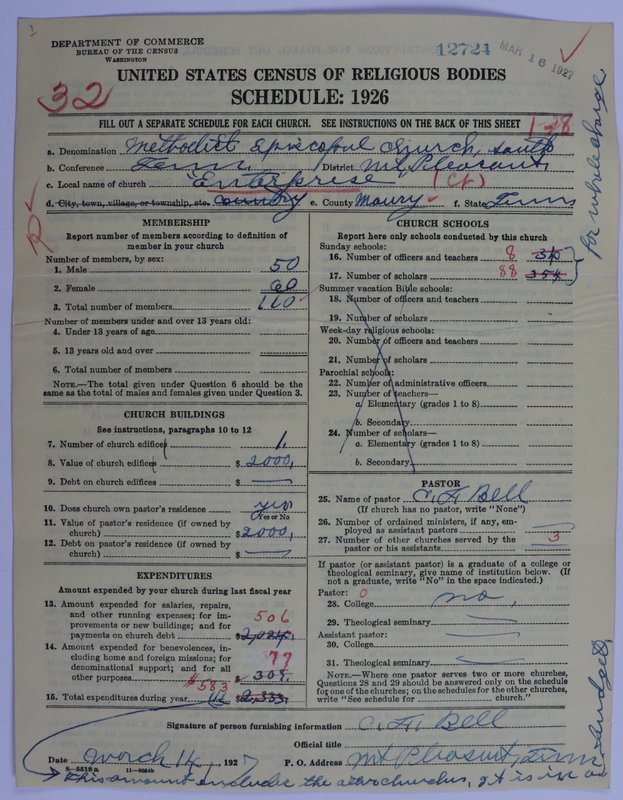 DEPARTMENT OF COMMERCE
BUREAU OF THE CENSUS
WASHINGTON
12724
MAR 16 1927
UNITED STATES CENSUS OF RELIGIOUS BODIES
32
SCHEDULE: 1926
FILL OUT A SEPARATE SCHEDULE FOR EACH CHURCH. SEE INSTRUCTIONS ON THE BACK OF THIS SHEET
1-28
a. Denomination Methodist Episcopal Church, South
b. Conference Tenn. District Mt. Pleasant,
c. Local name of church "Enterprise (Ct)
d. City, town, village, or township, etc. Country e. County Maury f. State Tenn
for whole charge
MEMBERSHIP
Report number of members according to definition of
member in your church
Number of members, by sex:
1. Male 50
2. Female 60
3. Total number of members 110
Number of members under and over 13 years old:
4. Under 13 years of age
5. 13 years old and over
6. Total number of members
NOTE.—The total given under Question 6 should be the
same as the total of males and females given under Question 3.
CHURCH BUILDINGS
See instructions, paragraphs 10 to 12
7. Number of church edifices 1,
8. Value of church edifices $ 2000,
9. Debt on church edifices $ —
10. Does church own pastor's residence yes
Yes or No
11. Value of pastor's residence (if owned by
church) $ 2000,
12. Debt on pastor's residence (if owned by
church) $ —
EXPENDITURES
Amount expended by your church during last fiscal year
13. Amount expended for salaries, repairs,
and other running expenses; for im-
provements or new buildings; and for
payments on church debt 506 $ 2,024,
14. Amount expended for benevolences, in-
cluding home and foreign missions; for
denominational support; and for all
other purposes 77 $ 309,
15. Total expenditures during year $583 2,333,
CHURCH SCHOOLS
Report here only schools conducted by this church
Sunday schools:
16. Number of officers and teachers 8
17. Number of scholars 88 354
Summer vacation Bible schools:
18. Number of officers and teachers
19. Number of scholars
Week-day religious schools:
20. Number of officers and teachers
21. Number of scholars
Parochial schools:
22. Number of administrative officers
23. Number of teachers—
a. Elementary (grades 1 to 8)
b. Secondary
24. Number of scholars—
a. Elementary (grades 1 to 8)
b. Secondary
PASTOR
25. Name of pastor C. H. Bell
(If church has no pastor, write "None")
26. Number of ordained ministers, if any, em-
ployed as assistant pastors —
27. Number of other churches served by the
pastor or his assistants 3
If pastor (or assistant pastor) is a graduate of a college or
theological seminary, give name of institution below. (If
not a graduate, write "No" in the space indicated.)
Pastor: 0
28. College no,
29. Theological seminary —
Assistant pastor:
30. College
31. Theological seminary —
NOTE.—Where one pastor serves two or more churches,
Questions 28 and 29 should be answered only on the schedule
for one of the churches; on the schedules for the other churches,
write "See schedule for church."
Signature of person furnishing information C. H. Bell
Official title
Date March 14, 1927 P. O. Address Mt Pleasant, Tenn
8-5518a 11-9034b
This amount includes the other churches, it is in one
budget,